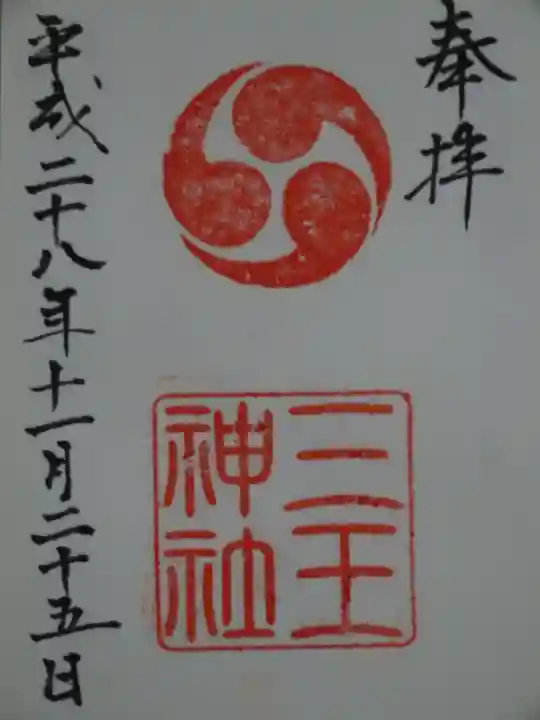 奉拝
三王
神社
平成二十八年十一月二十五日